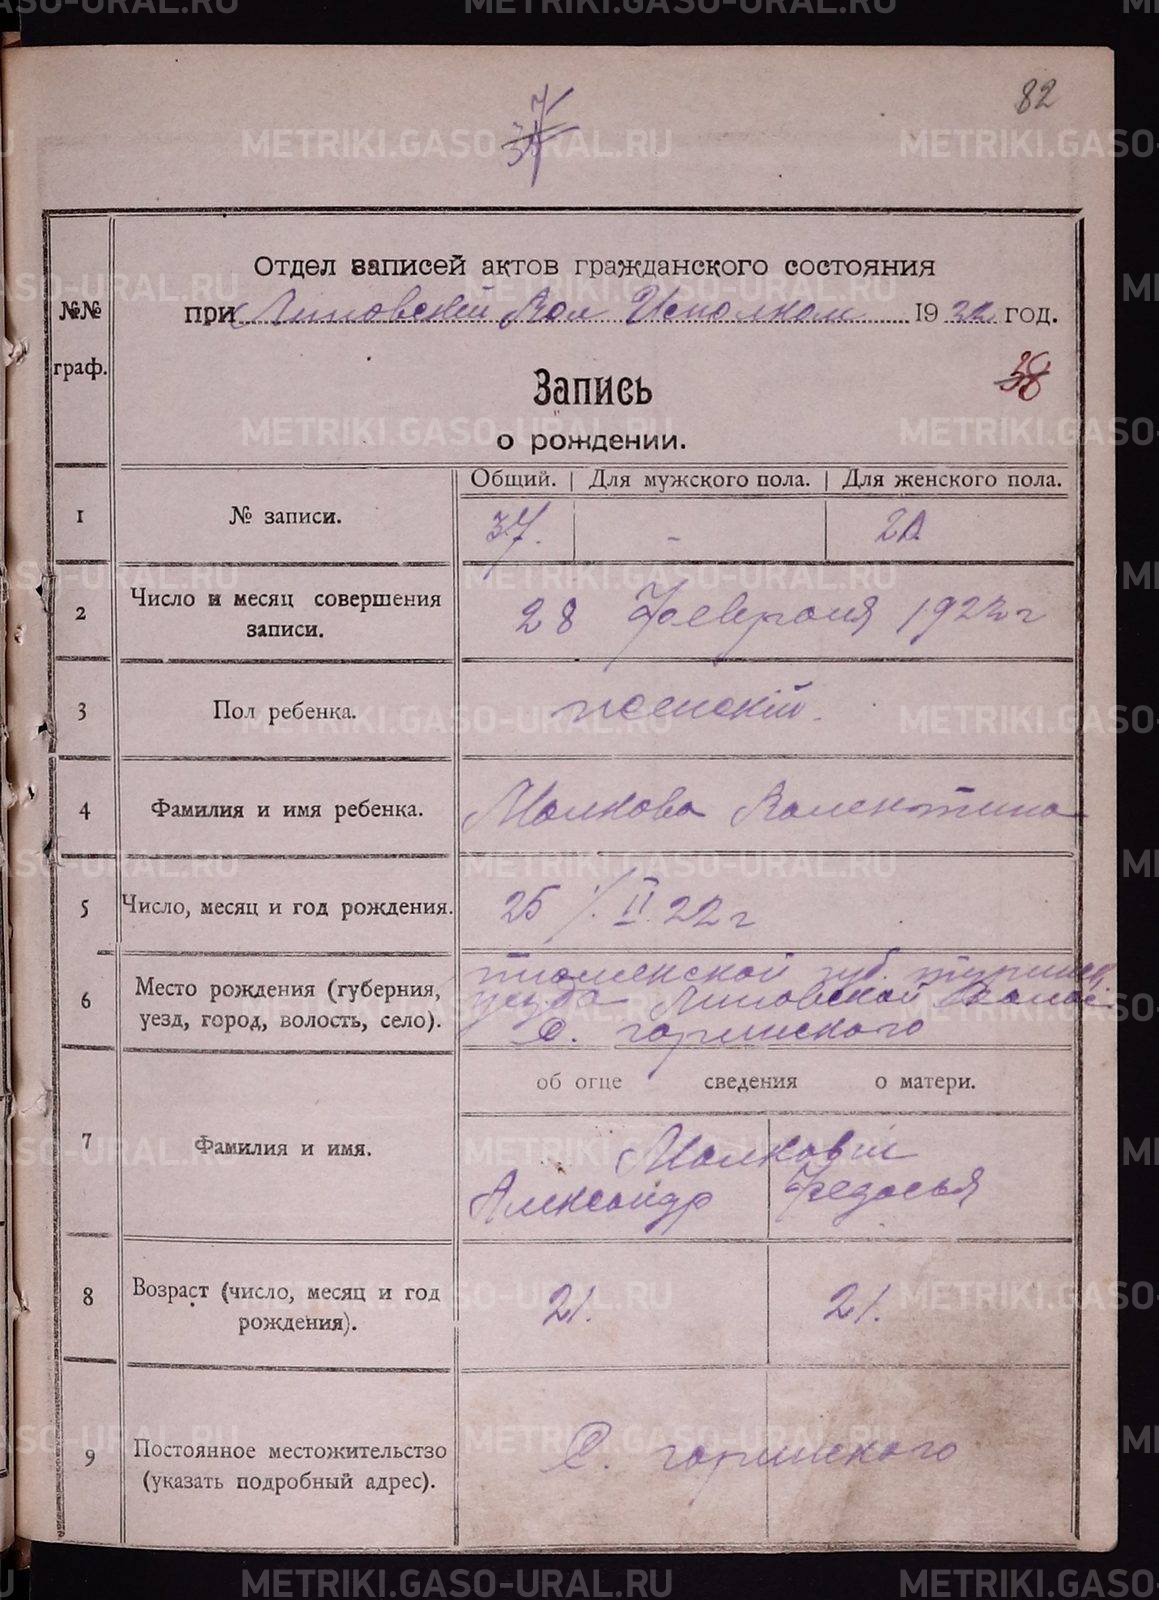 82
37
Отдел записей актов гражданского состояния
№№ при Липовский Вол Исполком 1922 год.
граф.
38
Запись
о рождении.
Общий. | Для мужского пола. | Для женского пола.
1 № записи. 37. - 20.
2 Число и месяц совершения
записи.
28 Февраля 1922 г
3 Пол ребенка. женский.
4 Фамилия и имя ребенка. Малкова Валентина
5 Число, месяц и год рождения. 25/II 22 г
6 Место рождения (губерния,
уезд, город, волость, село).
тюменской губ. туринск.
уезда Липовской Волос.
С. горинского
об отце сведения о матери.
7 Фамилия и имя.
Малковы
Александр Федосья
8 Возраст (число, месяц и год
рождения).
21. 21.
9 Постоянное местожительство
(указать подробный адрес).
С. горинского
METRIKI.GASO-URAL.RU